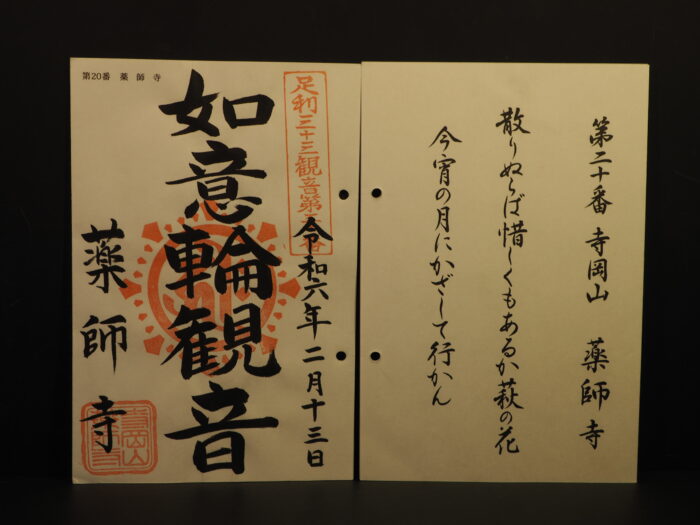 第二十番 寺岡山 薬師寺
散りぬらば惜しくもあるか萩の花
今宵の月にかざして行かん
第20番 薬師寺
足利三十三観音第
令和六年二月十三日
如意輪観音
薬師寺